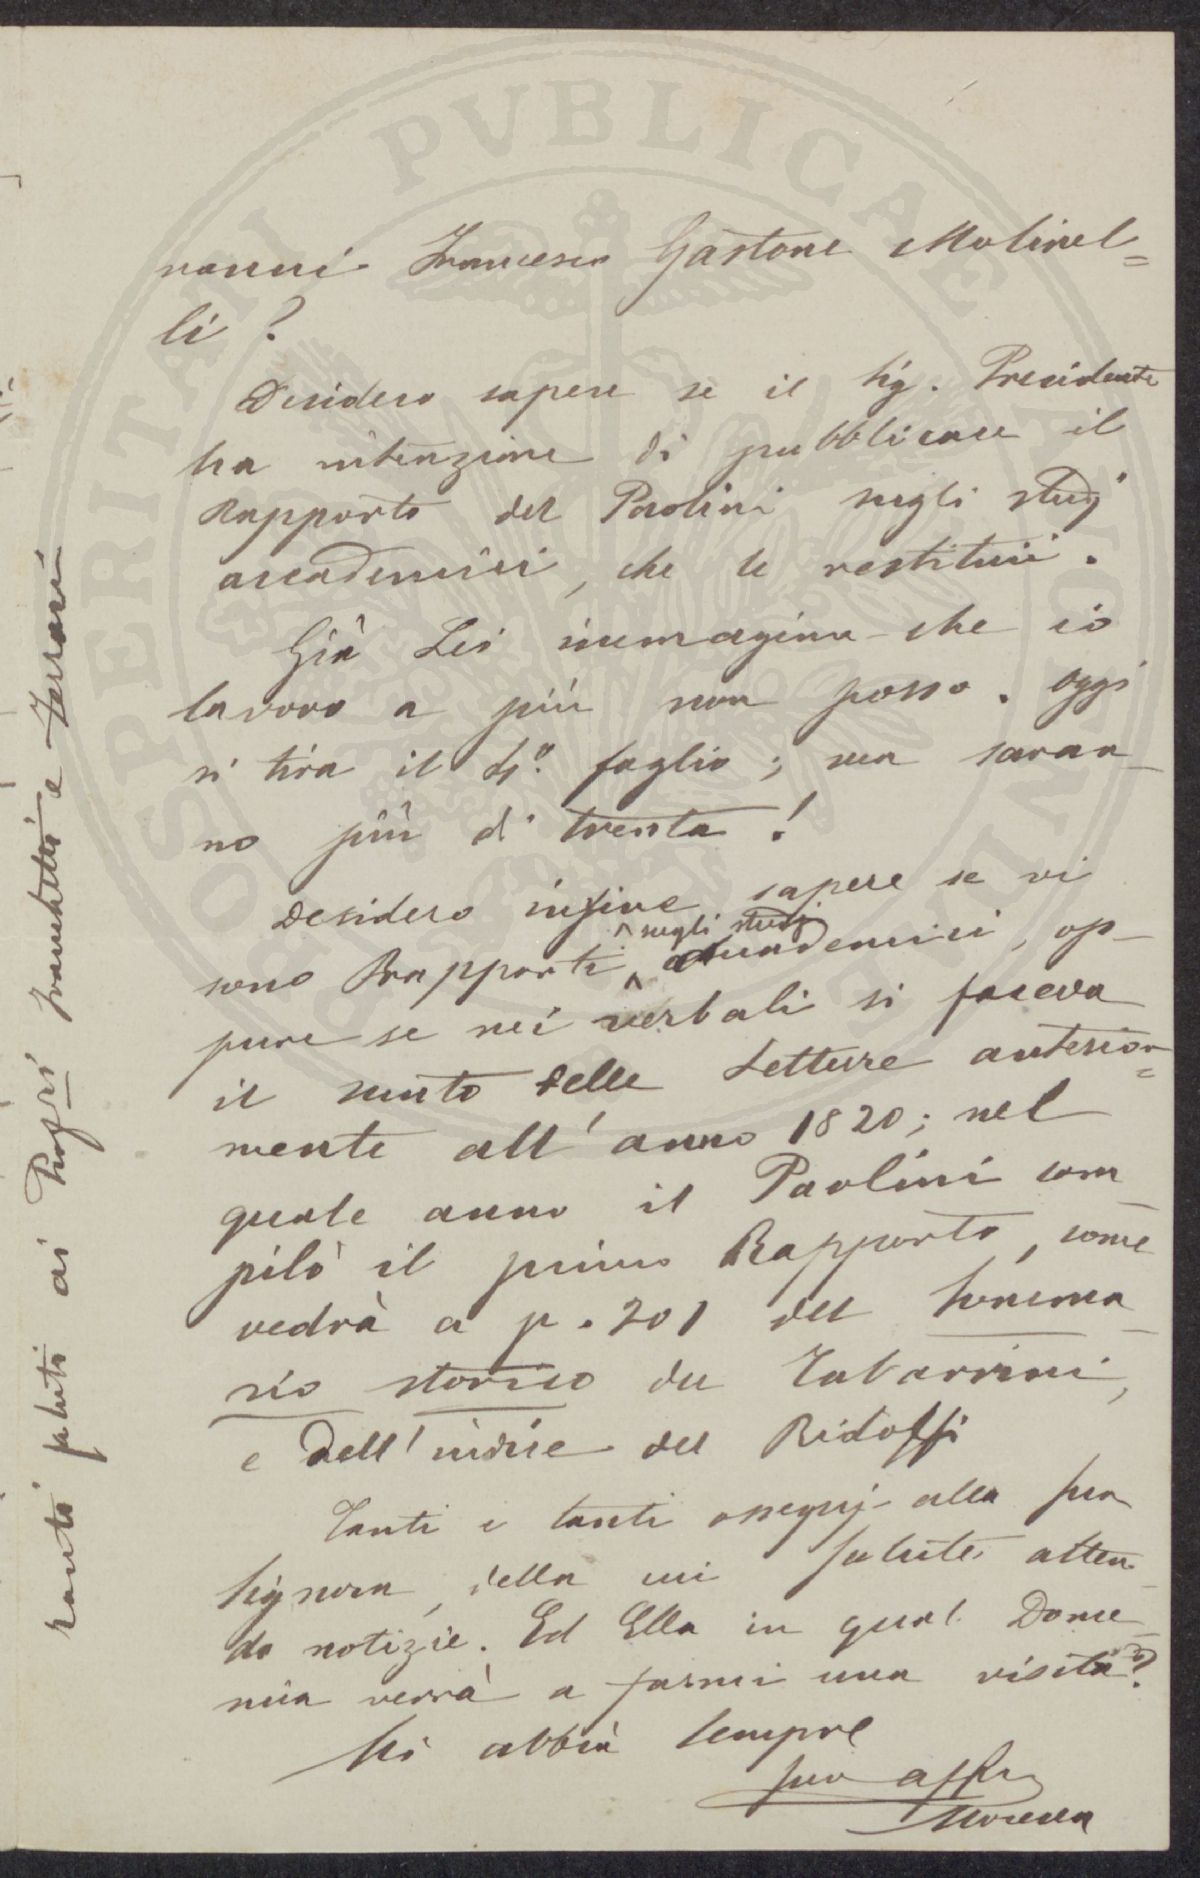 nanni Francesco Gastone Molinel=
li?
Desidero sapere se il Sig. Presidente
ha intenzione di pubblicare il
Rapporto del Paolini sugli studj
accademici, che le restituii.
Già Lei immagina che io
lavoro a più non posso. Oggi
si tira il 4º. foglio; ma saran-
no più di trenta!
Desidero infine sapere se vi
sono Rapporti sugli studj accademici, op-
pure se nei verbali si faceva
il sunto delle Letture anterior=
mente all'anno 1820; nel
quale anno il Paolini com-
pilò il primo Rapporto, come
vedrà a p. 201 del Somma-
rio storico del Tabarrini,
e dell'indice del Ridolfi
Tanti e tanti ossequj alla sua
Signora, della cui salute atten-
do notizie. Ed Ella in qual Dome-
nica verrà a farmi una visita?
Mi abbia sempre
suo aff
ai Pogri franchetti e